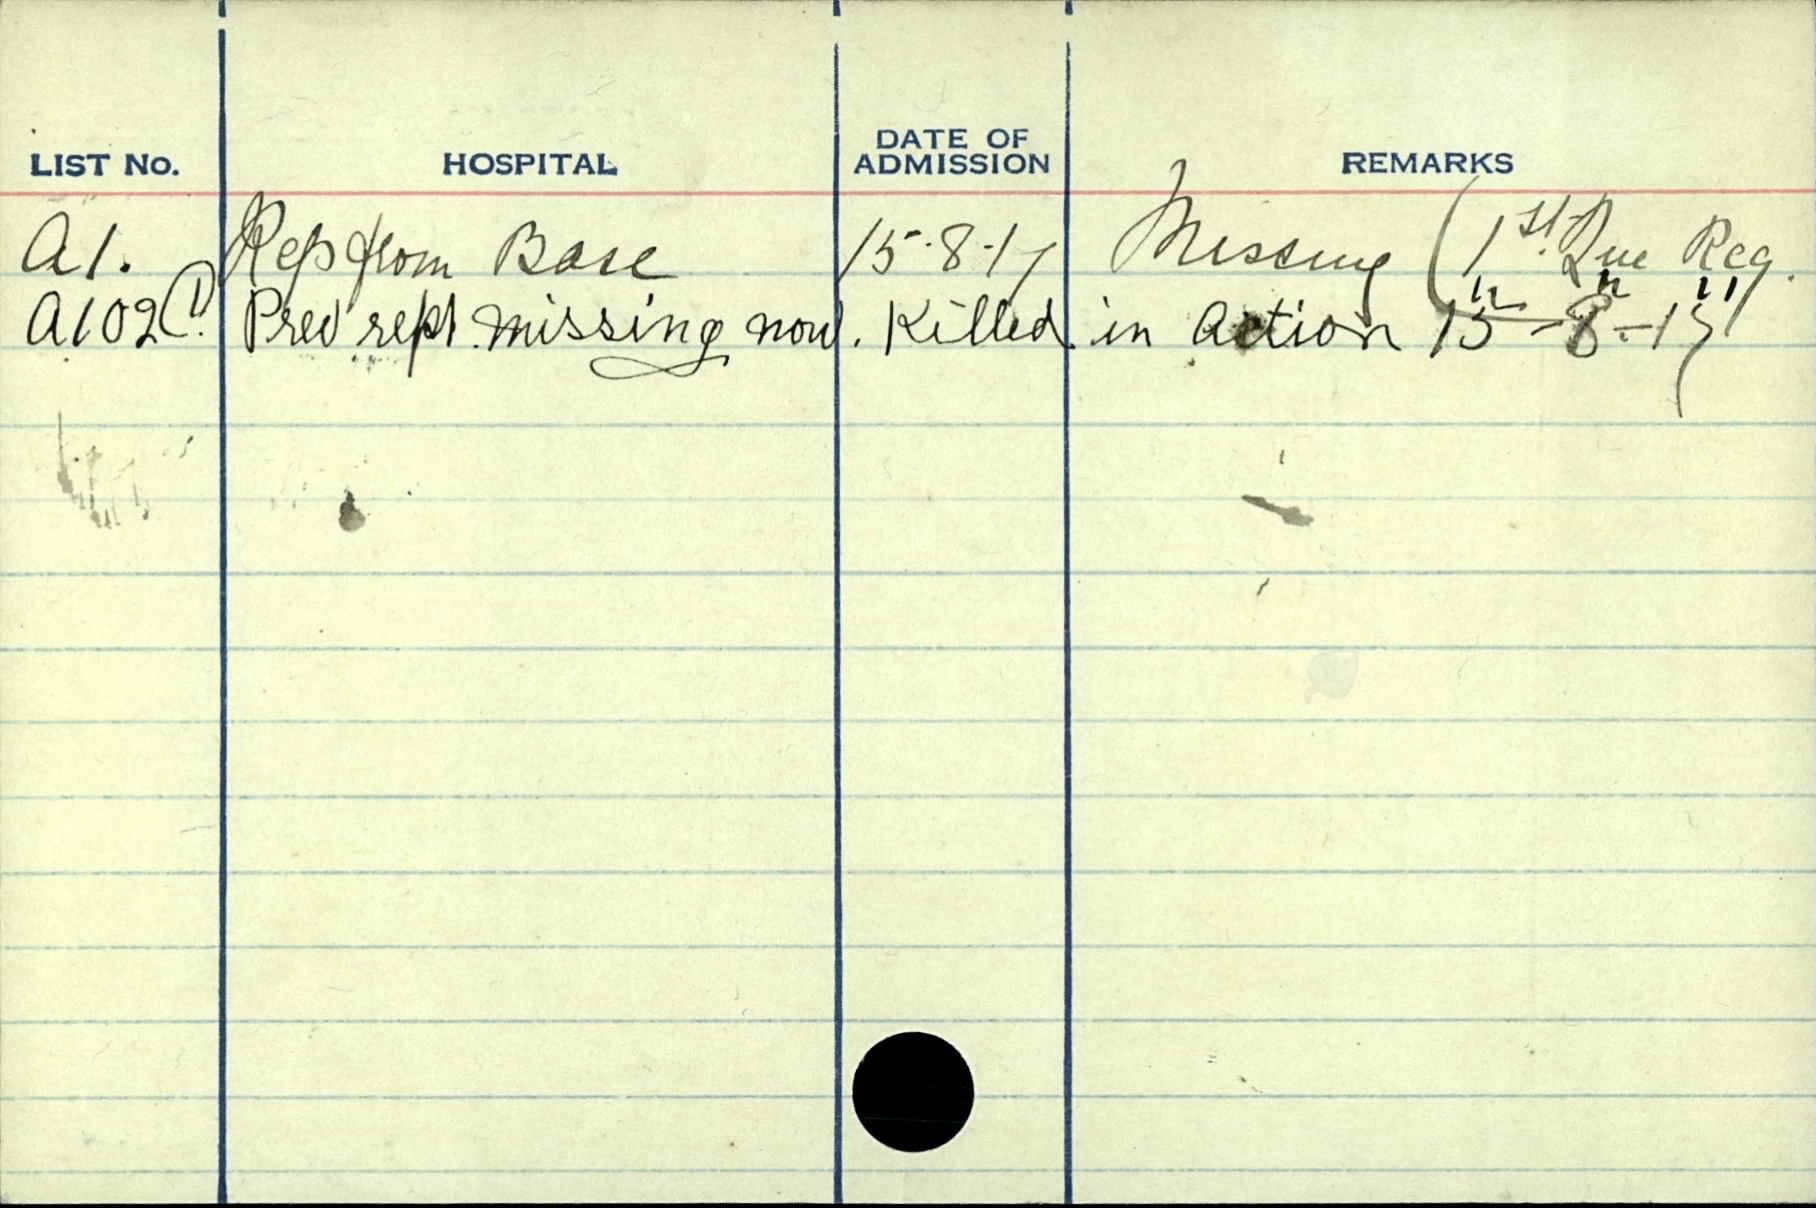 LIST No. HOSPITAL DATE OF ADMISSION REMARKS
A1. Rep from Base 15-8-17 Missing (1st Que Reg.
" " "
A102(1). Prev rept. missing now. Killed in Action 15-8-17